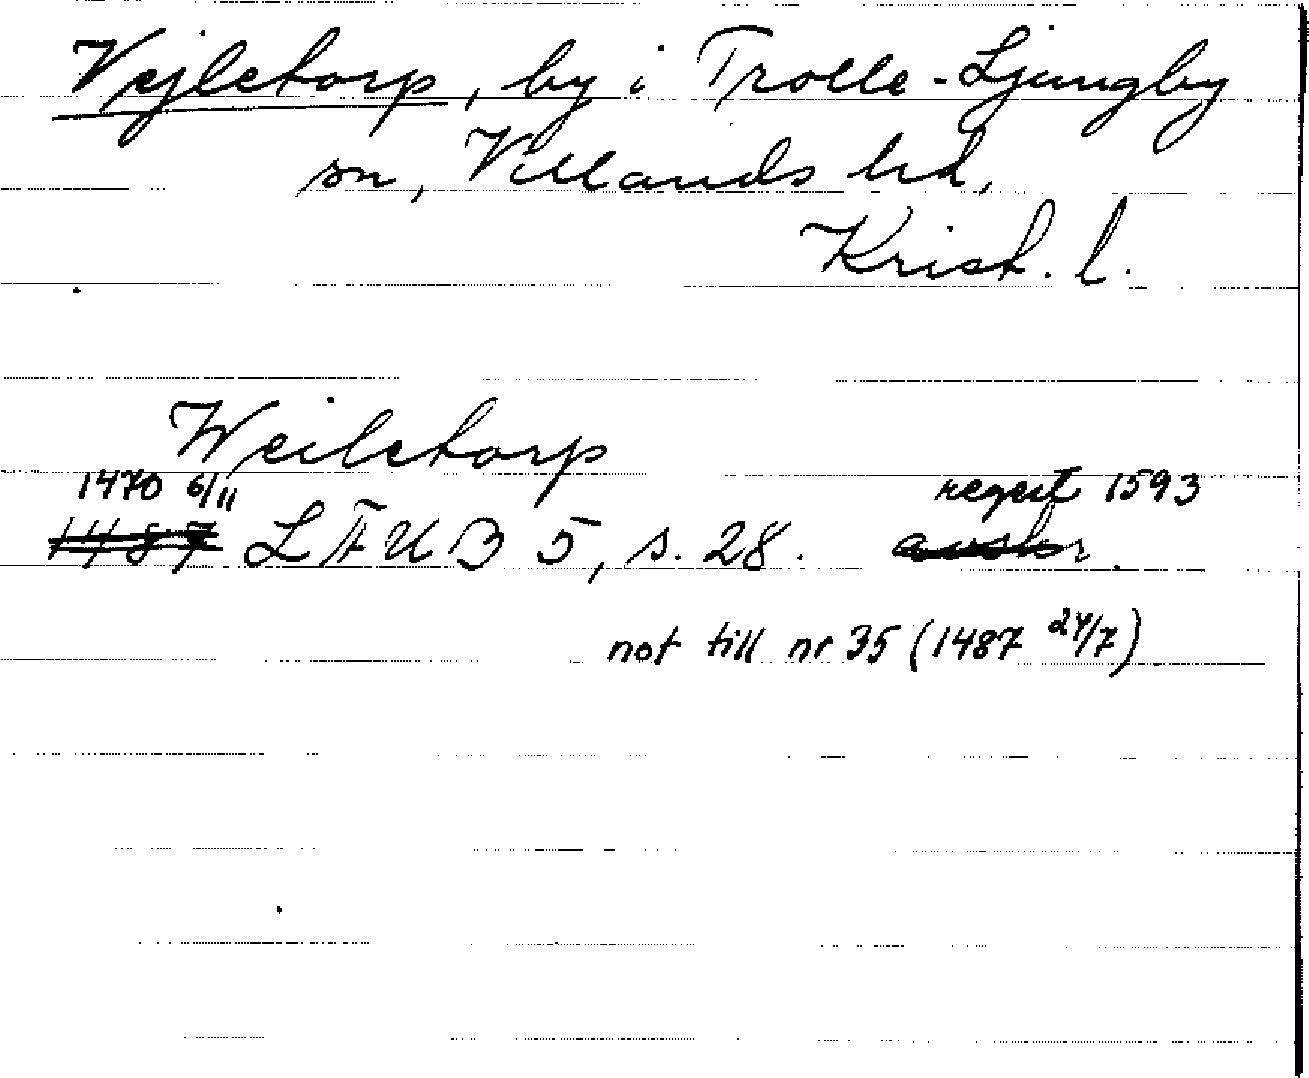 Vejletorp, by i Trolle-Ljungby
sn, Villands hd,
Krist. l.
Weiletorp
1470 6/11 regest 1593
1487 LÄUB 5, s. 28. avskr.
not till nr 35 (1487 24/7)